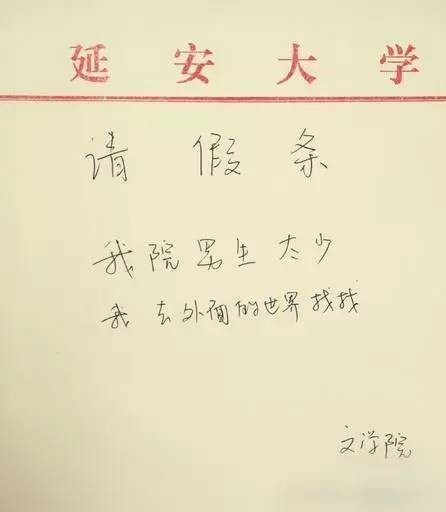 延安大学
请假条
我院男生太少
我去外面的世界找找
文学院